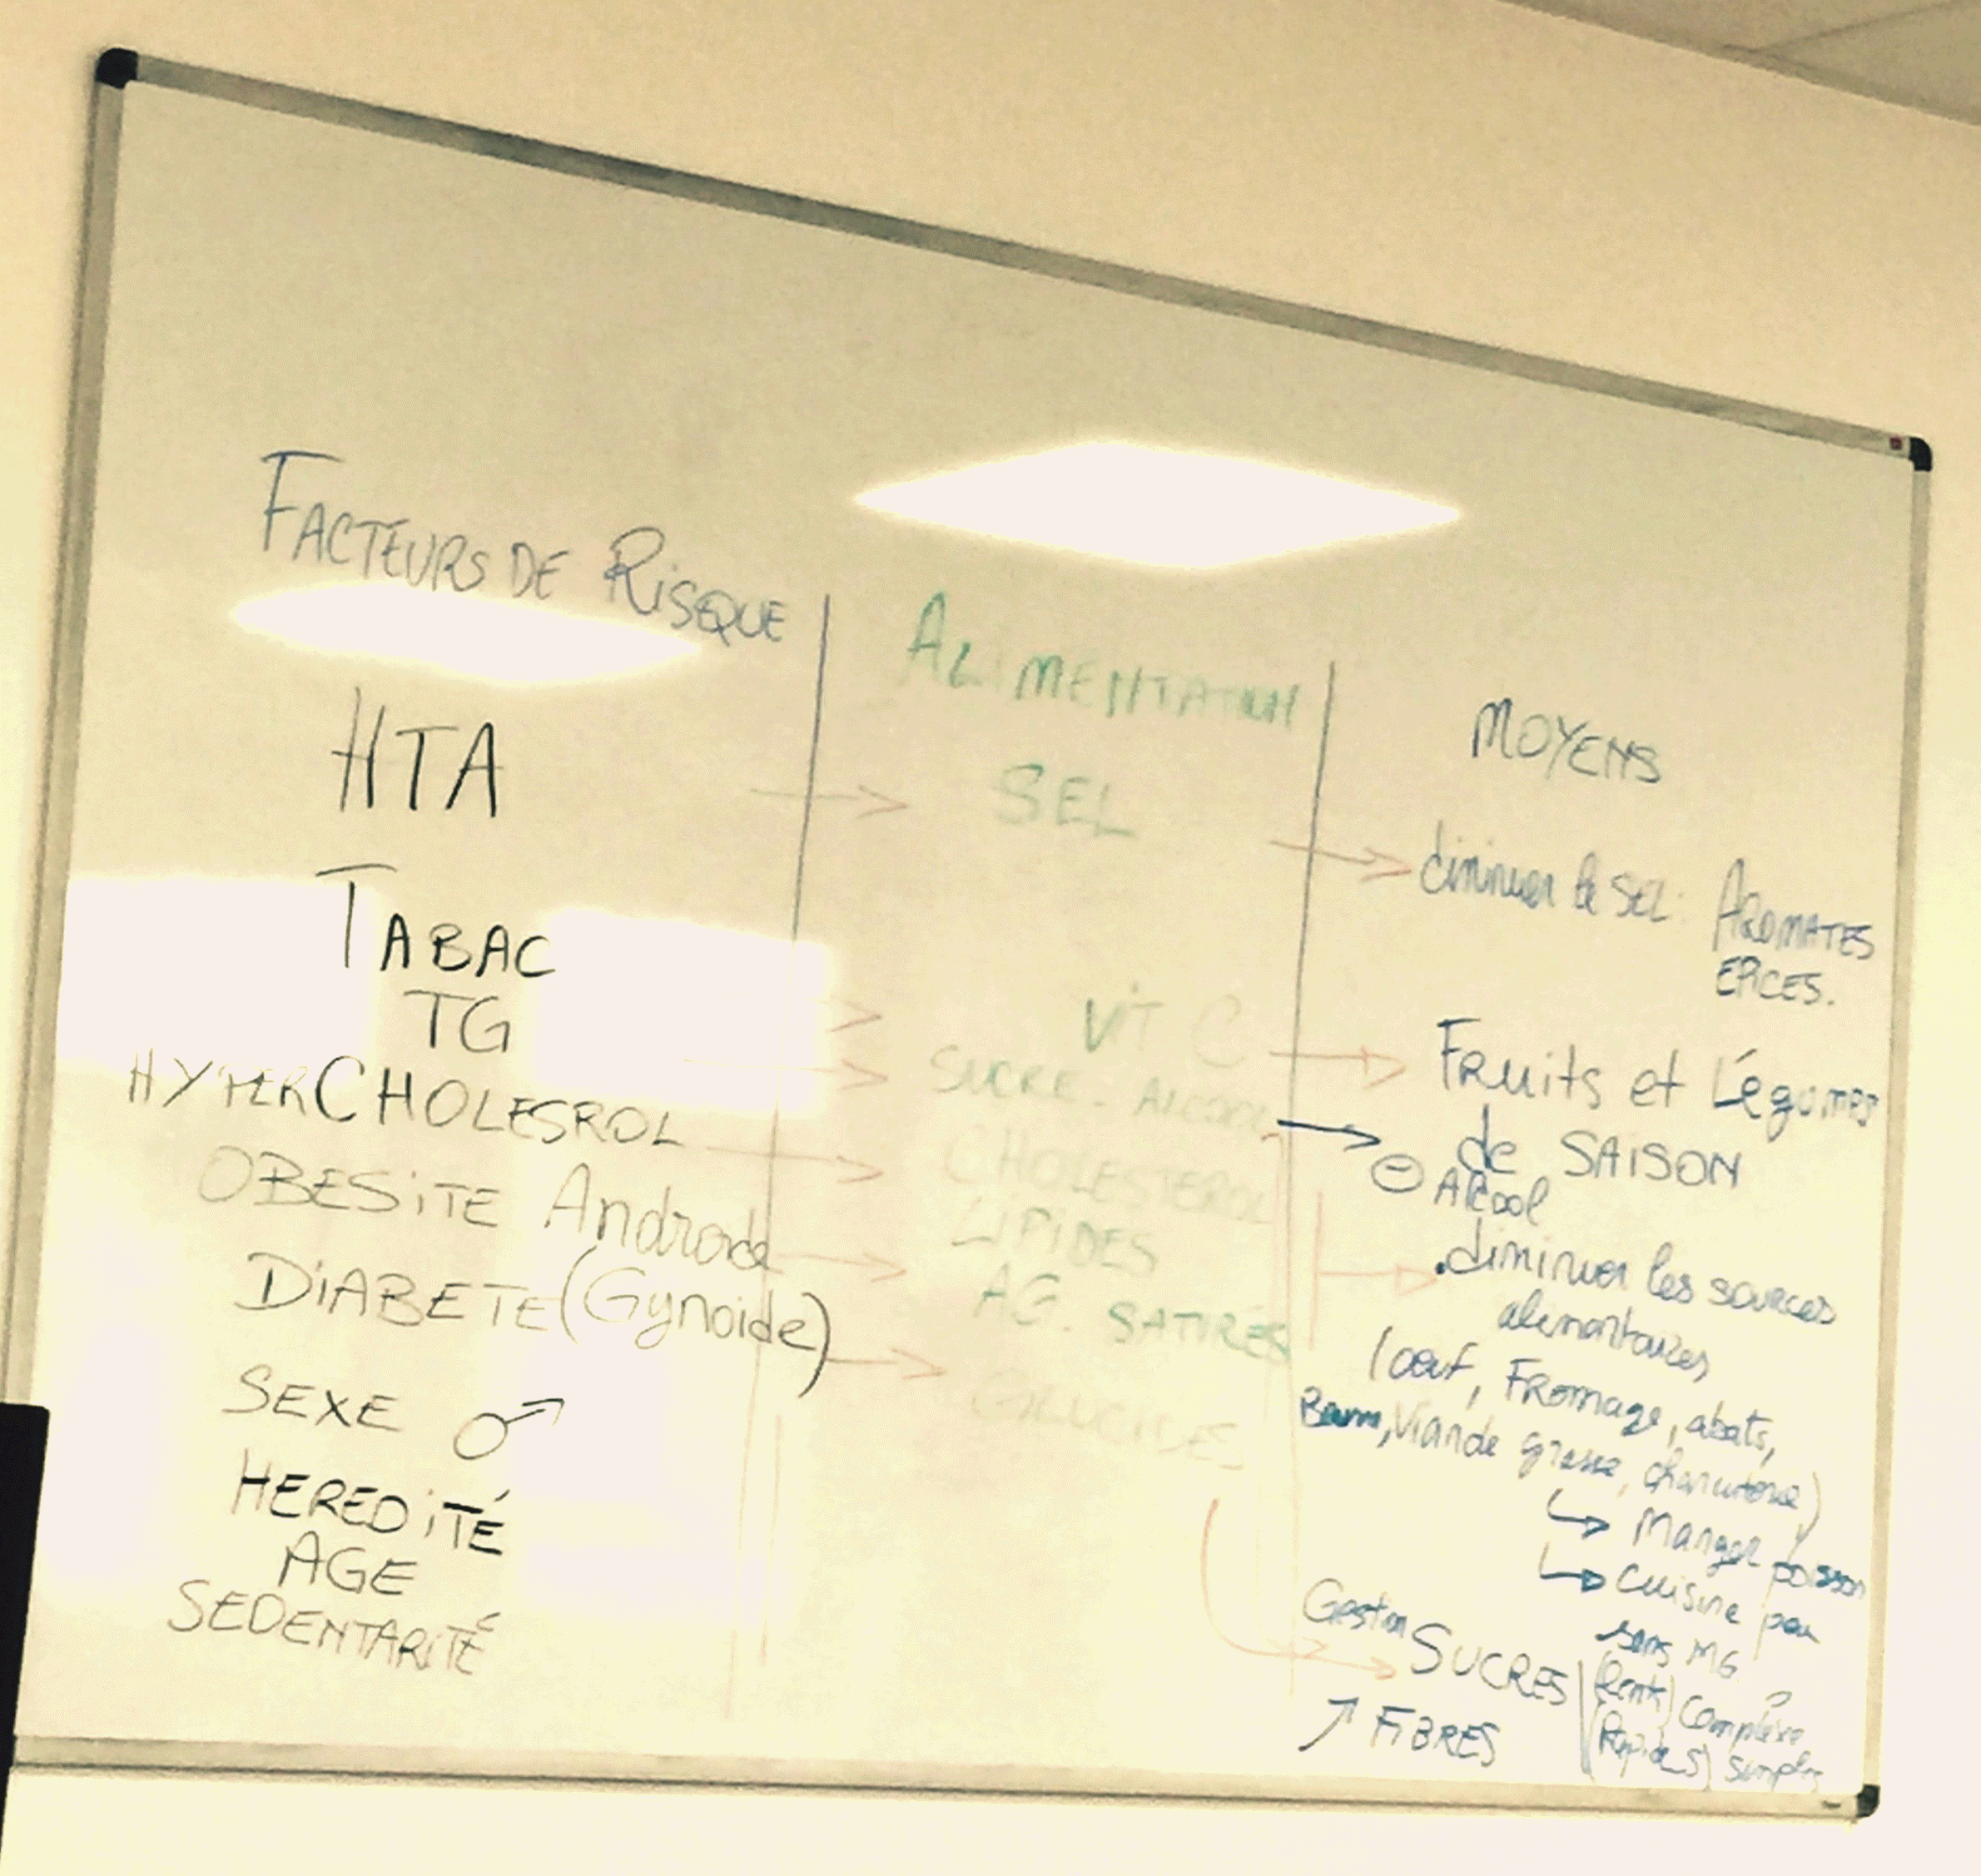 FACTEURS DE RISQUE
HTA
TABAC
TG
HYPERCHOLESROL
OBESITE Androide
DIABETE (Gynoide)
SEXE ♂
HEREDITÉ
AGE
SEDENTARITÉ
ALIMENTATION
SEL
Vit C
SUCRE - ALCOOL
CHOLESTEROL
LIPIDES
AG. SATURES
GLUCIDES
MOYENS
diminuer le SEL: AROMATES
EPICES.
FRuits et Légumes
de SAISON
⊖ Alcool
. diminuer les sources
alimentaires
(oeuf, FRomage, abats,
Viande grasse, charcuterie)
↳ Manger poisson
↳ Cuisine peu
sans MG
Gestion SUCRES (lents) complexe
(Rapides) simples
↗ FIBRES